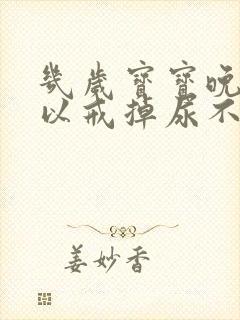 幾歲寶寶晚
以戒掉尿不
姜妙香